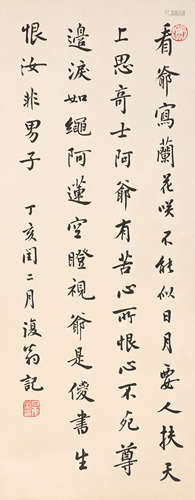 看爺寫蘭花咲不能似日月要人扶天
上思奇士阿爺有苦心所恨心不死尊
邊淚如繩阿蓮空瞪視爺是傻書生
恨汝非男子 丁亥閏二月復翁記